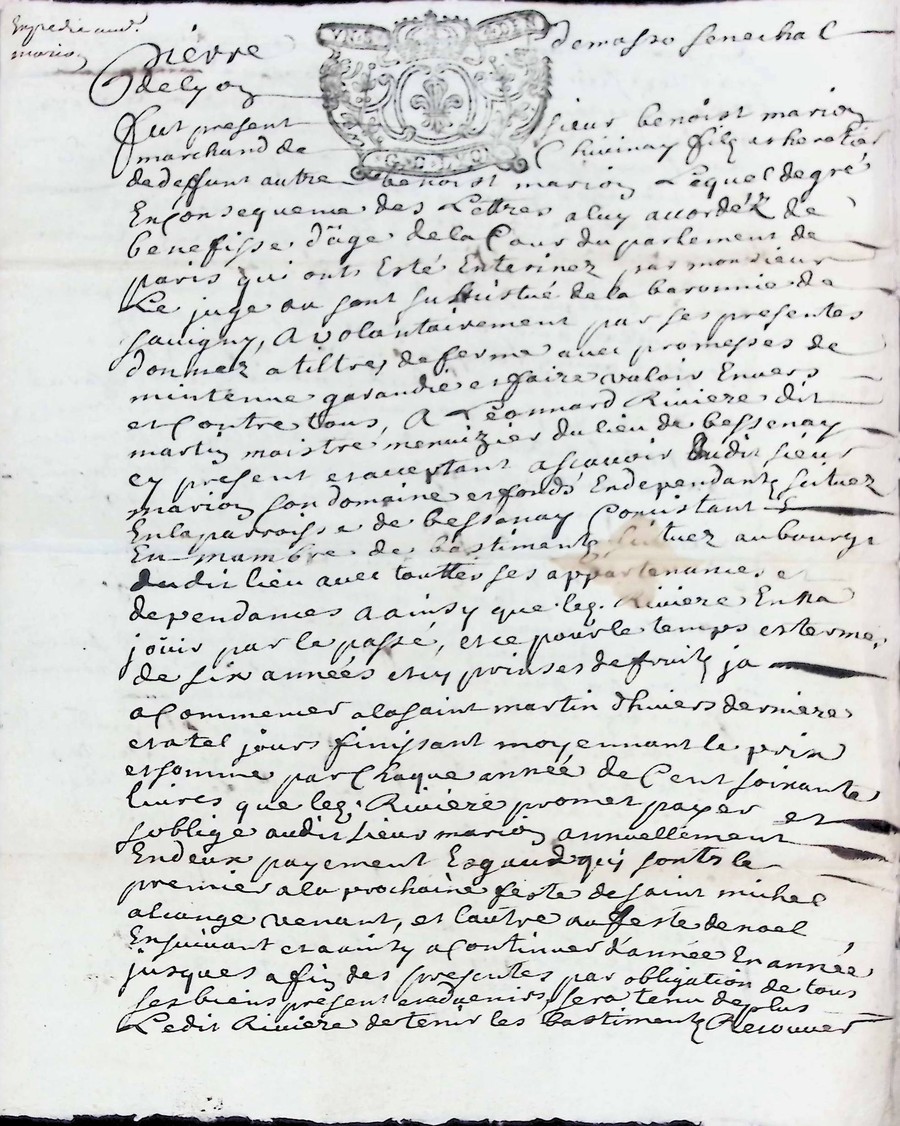 Expedié aud.
marion
Pierre demasso senechal
de lyon
fut present sieur benoist marion
marchand de Chivinay filz et heretier
de deffunt autre benoist marion Lequel de gré
En Consequence des Lettres a luy accordéz de
benefisse d'âge de la Cour du parlement de
paris qui onts Esté Enterinez par monsieur
Le juge ou sont substitué de la baronnie de
savigny, A volontairement par ses presentes
donnez a tiltres de ferme avec promesses de
mintenue garandie et faire valoir Envers
et Contre tous, A Léonnard Riviere dit
martin maistre menuizier du lieu de bessenay
cy present et acceptant ascavoir dudit sieur
marion son domaine et fonds Endependantz scituez
En la parroisse de bessenay Consistant
En mambre de bastimentz scituez au bourg
dudit lieu avec touttes ses appartenances et
dependances aainsy que led. Riviere En ha
joüir par le passé, et ce pour le temps et terme,
de six années et six prinses de fruitz ja
a Commencer a la saint martin d'hivers derniere
et a tel jours finissant moyennant le prix
et somme par Chaque année de Cent soixante
livres que led. Riviere promet payer et
s'oblige audit sieur marion annuellement
En deux payement Esgaud qui sonts le
premier a la prochaine feste de saint michel
alcange venant, et l'autre au feste de noel
En suivant et aainsy a Continuer d'année En année
jusques a fin des presentes par obligation de tous
ses biens present et advenirs, sera tenu de plus
Ledit Riviere de tenir les bastimentz Recouver